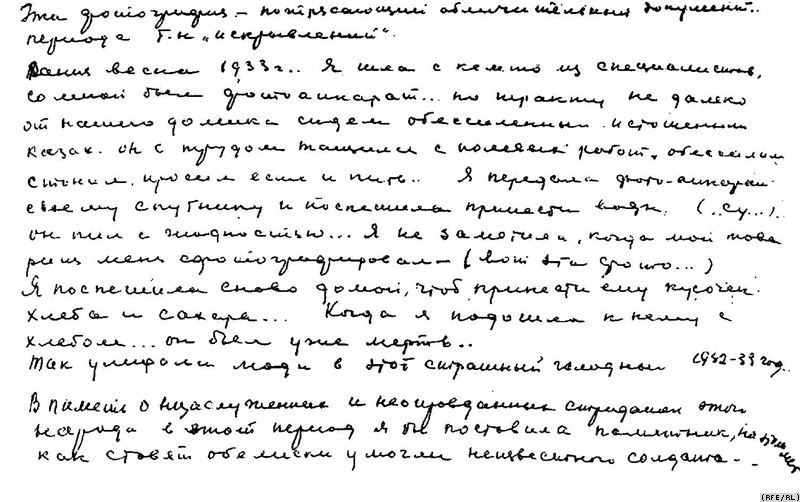 Эта фотография – потрясающий обличительный документ..
периода т.н „искривлений“.
Ранняя весна 1933 г.. Я шла с кем то из специалистов,
со мной был фотоаппарат... по тракту не далеко
от нашего домика сидел обессиленный истощенный
казах. он с трудом тащился с полевых работ, обессилил
стонал, просил есть и пить.. Я передала фото-аппарат
своему спутнику и поспешила принести воды. (..су...).
он пил с жадностью... Я не заметила, когда мой това
рищ меня сфотографировал – (вот эта фото...)
Я поспешила снова домой, чтоб принести ему кусочек
хлеба и сахара... Когда я подошла к нему с
хлебом... он был уже мертв..
Так умирали люди в этот страшный голодный 1932-33 год..
В память о незаслуженных и неоправданных страданиях этого
народа в этот период я бы поставила памятник,
как ставят обелиски у могил неизвестного солдата..
(RFE/RL)